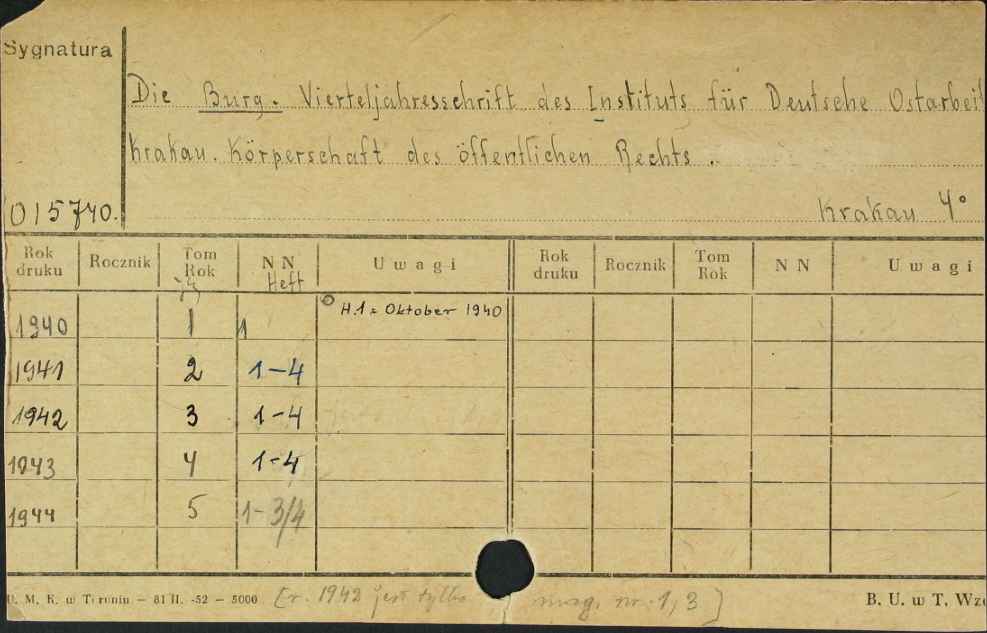 Sygnatura
Die Burg. Vierteljahresschrift des Instituts für Deutsche Ostarbeit
Krakau. Körperschaft des öffentlichen Rechts.
015740.
Krakau 4°
Rok druku Rocznik Tom Rok N N Uwagi Rok druku Rocznik Tom Rok N N Uwagi
Jg Heft
1940 1 1 H.1 = Oktober 1940
1941 2 1-4
1942 3 1-4
1943 4 1-4
1944 5 1-3/4
U. M. K. w Toruniu — 81 II. -52 — 5000 [r. 1942 jest tylko mag. nr. 1, 3] B. U. w T. Wzó